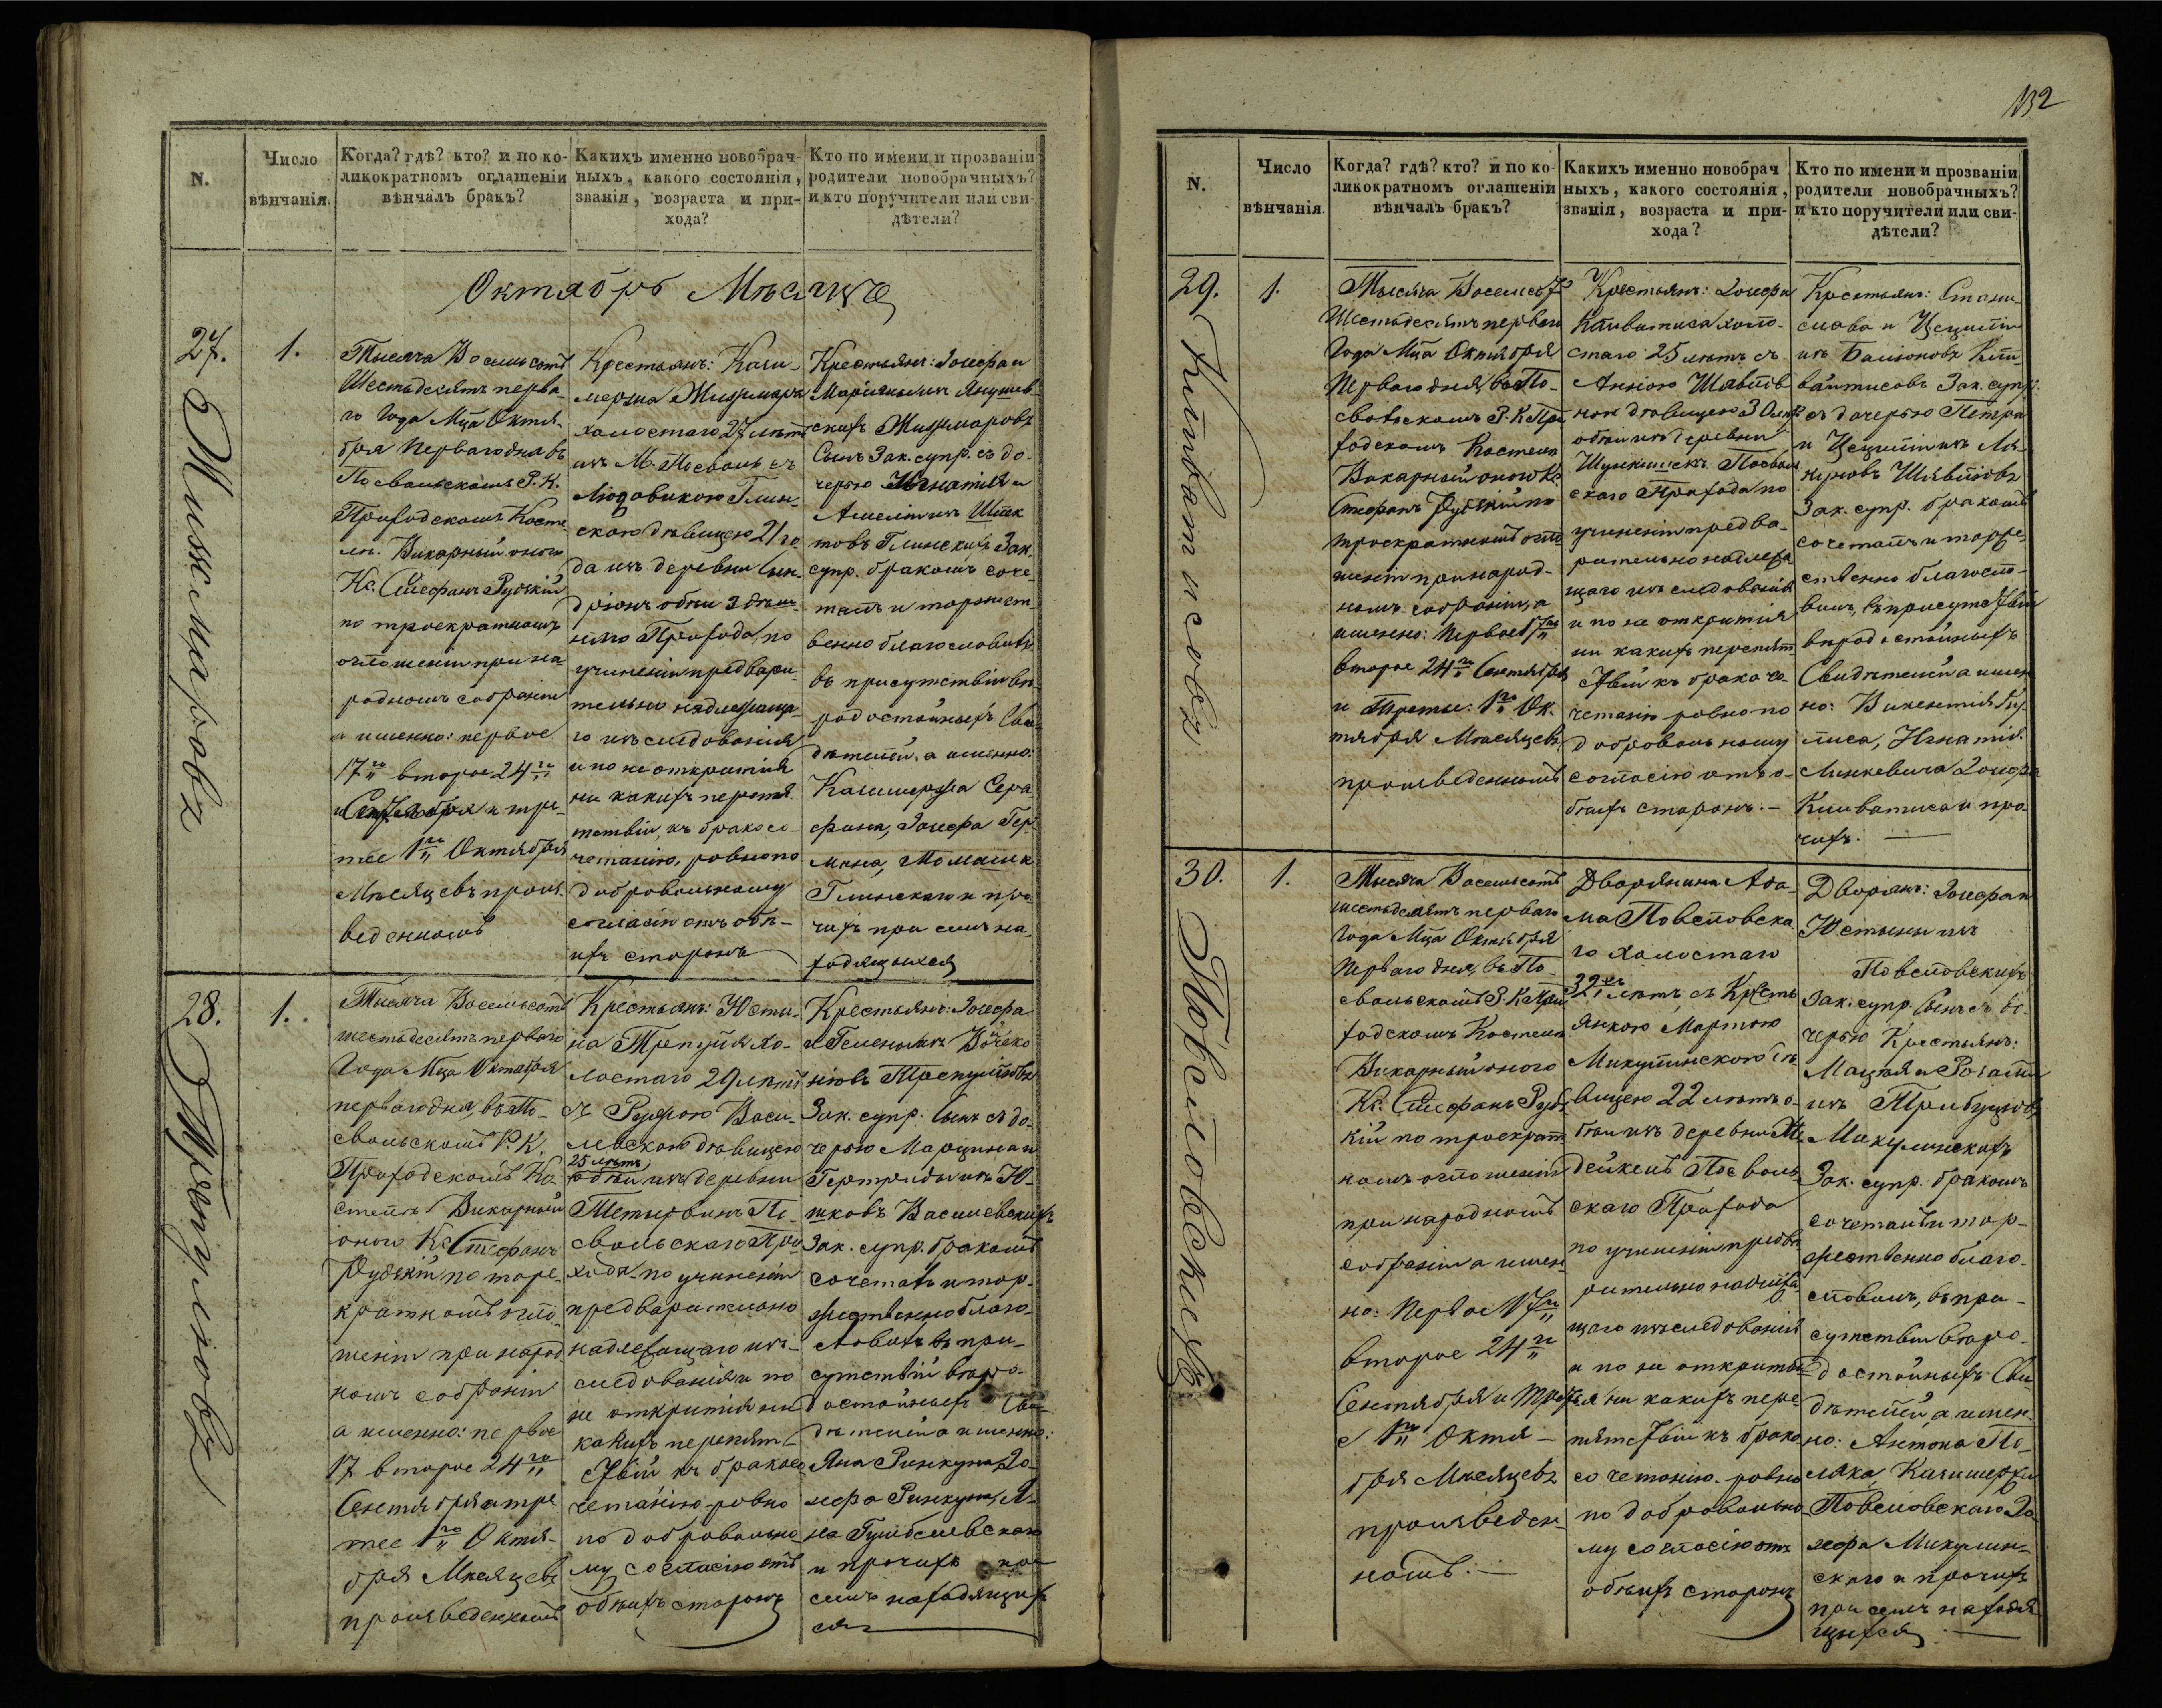 N.
Число
вѣнчанія.
Когда? гдѣ? кто? и по ко-
ликократномъ оглашеніи
вѣнчалъ бракъ?
Какихъ именно новобрач-
ныхъ, какого состоянія,
званія, возраста и при-
хода?
Кто по имени и прозваніи
родители новобрачныхъ?
и кто поручители или сви-
дѣтели?
Октябрь Мѣсяцъ
27.
1.
Тысяча Восемьсотъ
Шестьдесятъ перва-
го Года Мца Октя-
бря Перваго дня въ
Посвольскомъ Р. К.
Приходскомъ Косте-
лѣ. Викарный оного
Кс. Стефанъ Рудзкій
по троекратномъ
оглошеніи при на-
родномъ собраніи
а именно: первое
17го второе 24го
Сентября и тре-
тее 1го Октября
Мѣсяцевъ произ-
веденномъ
Крестьянъ: Кази-
мержа Жижмара
холостаго 27 лѣтъ
изъ М. Посволь съ
Людовикою Глин-
скою дѣвицею 21 го-
да изъ деревни
обѣи здѣш-
няго Прихода, по
учиненіи предвари-
тельно надлежаща-
го изъследованія
и по не открытія
ни какихъ препят-
ствіи, къ бракосо-
четанію, ровно по
добровольному
согласію отъ обѣ-
ихъ сторонъ
Крестьянъ: Іозефа и
Маріянны изъ Янушев-
скихъ Жижмаровъ
Сынъ Зак. супр. съ до-
черью Игнатія и
Амеліи изъ
Глинскихъ Зак.
супр. бракомъ соче-
талъ и торжест-
венно благословилъ
въ присутствіи вѣ-
родостойныхъ Сви-
дѣтелей, а именно:
Казимержа
Іозефа
Глинскаго и про-
чихъ при семъ на-
ходящихся
28.
1.
Тысяча Восемьсотъ
шестьдесятъ перваго
Года Мца Октября
перваго дня, въ По-
свольскомъ Р. К.
Приходскомъ Ко-
стелѣ Викарный
оного Кс. Стефанъ
Рудзкій по трое-
кратномъ огло-
шеніи при народ-
номъ собраніи
а именно: первое
17 второе 24го
Сентября и тре-
тее 1го Октя-
бря Мѣсяцевъ
произведенномъ
Крестьянъ: Юсты-
на Трепуля хо-
лостаго 29 лѣтъ
съ Розою Васи-
левскою дѣвицею
25 лѣтъ
обѣи изъ деревни
По-
свольскаго При-
хода по учиненіи
предварительно
надлежащаго изъ-
следованія и по
не открытія ни
какихъ препят-
ствій къ бракосо-
четанію ровно
по добровольно-
му согласію отъ
обѣихъ сторонъ
Крестьянъ: Іозефа
и Гелены изъ
Трепулёвъ
Зак. супр. Сынъ съ до-
черью Марцина и
Гертруды изъ Ю-
шковъ Василевскихъ
Зак. супр. бракомъ
сочеталъ и тор-
жественно благо-
словилъ въ при-
сутствіи вѣро-
достойныхъ Сви-
дѣтелей а именно:
Яна Ринкуна, Іо-
зефа Ринкуна, Я-
на
и прочихъ при
семъ находящих-
ся
132
N.
Число
вѣнчанія.
Когда? гдѣ? кто? и по ко-
ликократномъ оглашеніи
вѣнчалъ бракъ?
Какихъ именно новобрач
ныхъ, какого состоянія,
званія, возраста и при-
хода?
Кто по имени и прозваніи
родители новобрачныхъ?
и кто поручители или сви-
дѣтели?
29.
1.
Тысяча Восемьсотъ
Шестьдесятъ перваго
Года Мца Октября
Перваго дня, въ По-
свольскомъ Р. К. При-
ходскомъ Костелѣ
Викарный оного Кс.
Стефанъ Рудзкій по
троекратномъ огло-
шеніи при народ-
номъ собраніи, а
именно: Первое 17го
второе 24го Сентября
и Третье: 1го Ок-
тября Мѣсяцевъ
произведенномъ
Крестьянъ: Іозефа
холо-
стаго 25 лѣтъ съ
Анною
дѣвицею 30 лѣтъ
обѣи изъ деревни
Посволь-
скаго Прихода по
учиненіи предва-
рительно надлежа-
щаго изъследованія
и по не открытія
ни какихъ препят-
ствій къ бракосо-
четанію ровно по
добровольному
согласію отъ о-
бѣихъ сторонъ.
Крестьянъ: Стани-
слава и Цециліи
изъ
Зак. супр.
съ дочерью Петра
и Цециліи изъ
Зак. супр. бракомъ
сочеталъ и торже-
ственно благосло-
вилъ, въ присутствіи
вѣродостойныхъ
Свидѣтелей а имен-
но: Викентія
Игнатія
Іозефа
и про-
чихъ.
30.
1.
Тысяча Восемьсотъ
шестьдесятъ перваго
Года Мца Октября
Перваго дня, въ По-
свольскомъ Р. К. При-
ходскомъ Костелѣ
Викарный оного
Кс. Стефанъ Рудз-
кій по троекрат-
номъ оглошеніи
при народномъ
собраніи а имен-
но: Первое 17го
второе 24го
Сентября и Треть-
е 1го Октя-
бря Мѣсяцевъ
произведен-
номъ.
Дворянина Ада-
ма Повсловска-
го холостаго
32 лѣтъ, съ Кресть-
янкою Мартою
Микулинскою дѣ-
вицею 22 лѣтъ о-
бѣи изъ деревни
Посволь-
скаго Прихода
по учиненіи предва-
рительно надлежа-
щаго изъследованія
и по не открыті-
я ни какихъ пре-
пятствіи къ брако-
сочетанію ровно
по добровольно-
му согласію отъ
обѣихъ сторонъ
Дворянъ: Іозефа и
Юстыны изъ
Повсловскихъ
Зак. супр. Сынъ съ до-
черью Крестьянъ:
Мацѣя и Розаліи
изъ
Микулинскихъ
Зак. супр. бракомъ
сочеталъ и тор-
жественно благо-
словилъ, въ при-
сутствіи вѣро-
достойныхъ Сви-
дѣтелей, а имен-
но: Антона По-
ляка, Казимержа
Повсловскаго Іо-
зефа Микулин-
скаго и прочихъ
при семъ находя-
щихся